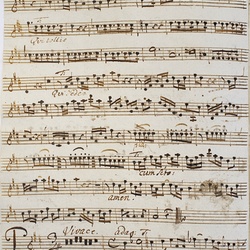 Qui tollis
Qui sedes
cum sto:
amen.
Vivace. adag